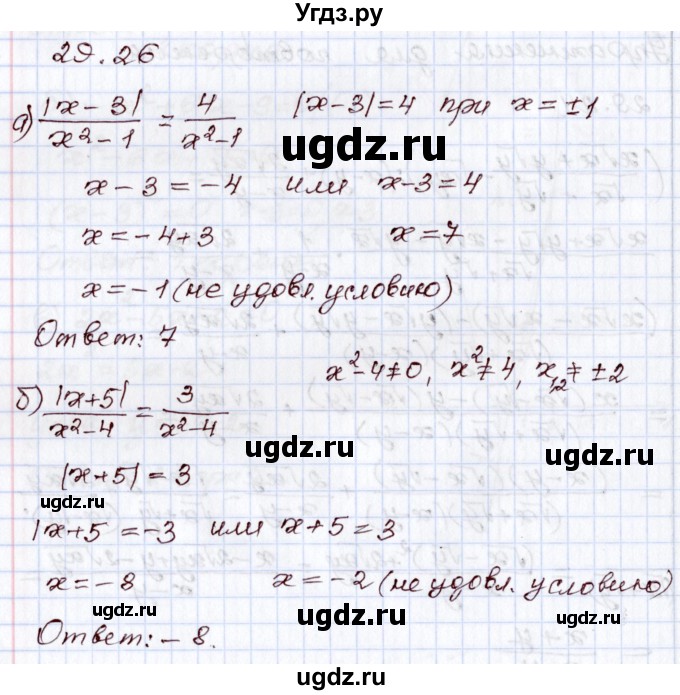 Угдз.ру
29.26
а) |x-3|/(x²-1) = 4/(x²-1) |x-3|=4 при x=±1
ugdz.ru
x-3=-4 или x-3=4
x=-4+3 x=7
ugdz.ru
x=-1 (не удовл. условию)
Ответ: 7
ugdz.ru
x²-4≠0, x²≠4, x₁,₂≠±2
б) |x+5|/(x²-4) = 3/(x²-4)
ugdz.ru
|x+5|=3
ugdz.ru
|x+5=-3 или x+5=3
ugdz.ru
x=-8 x=-2 (не удовл. условию)
ugdz.ru
Ответ: -8.
ugdz.ru
ugdz.ru